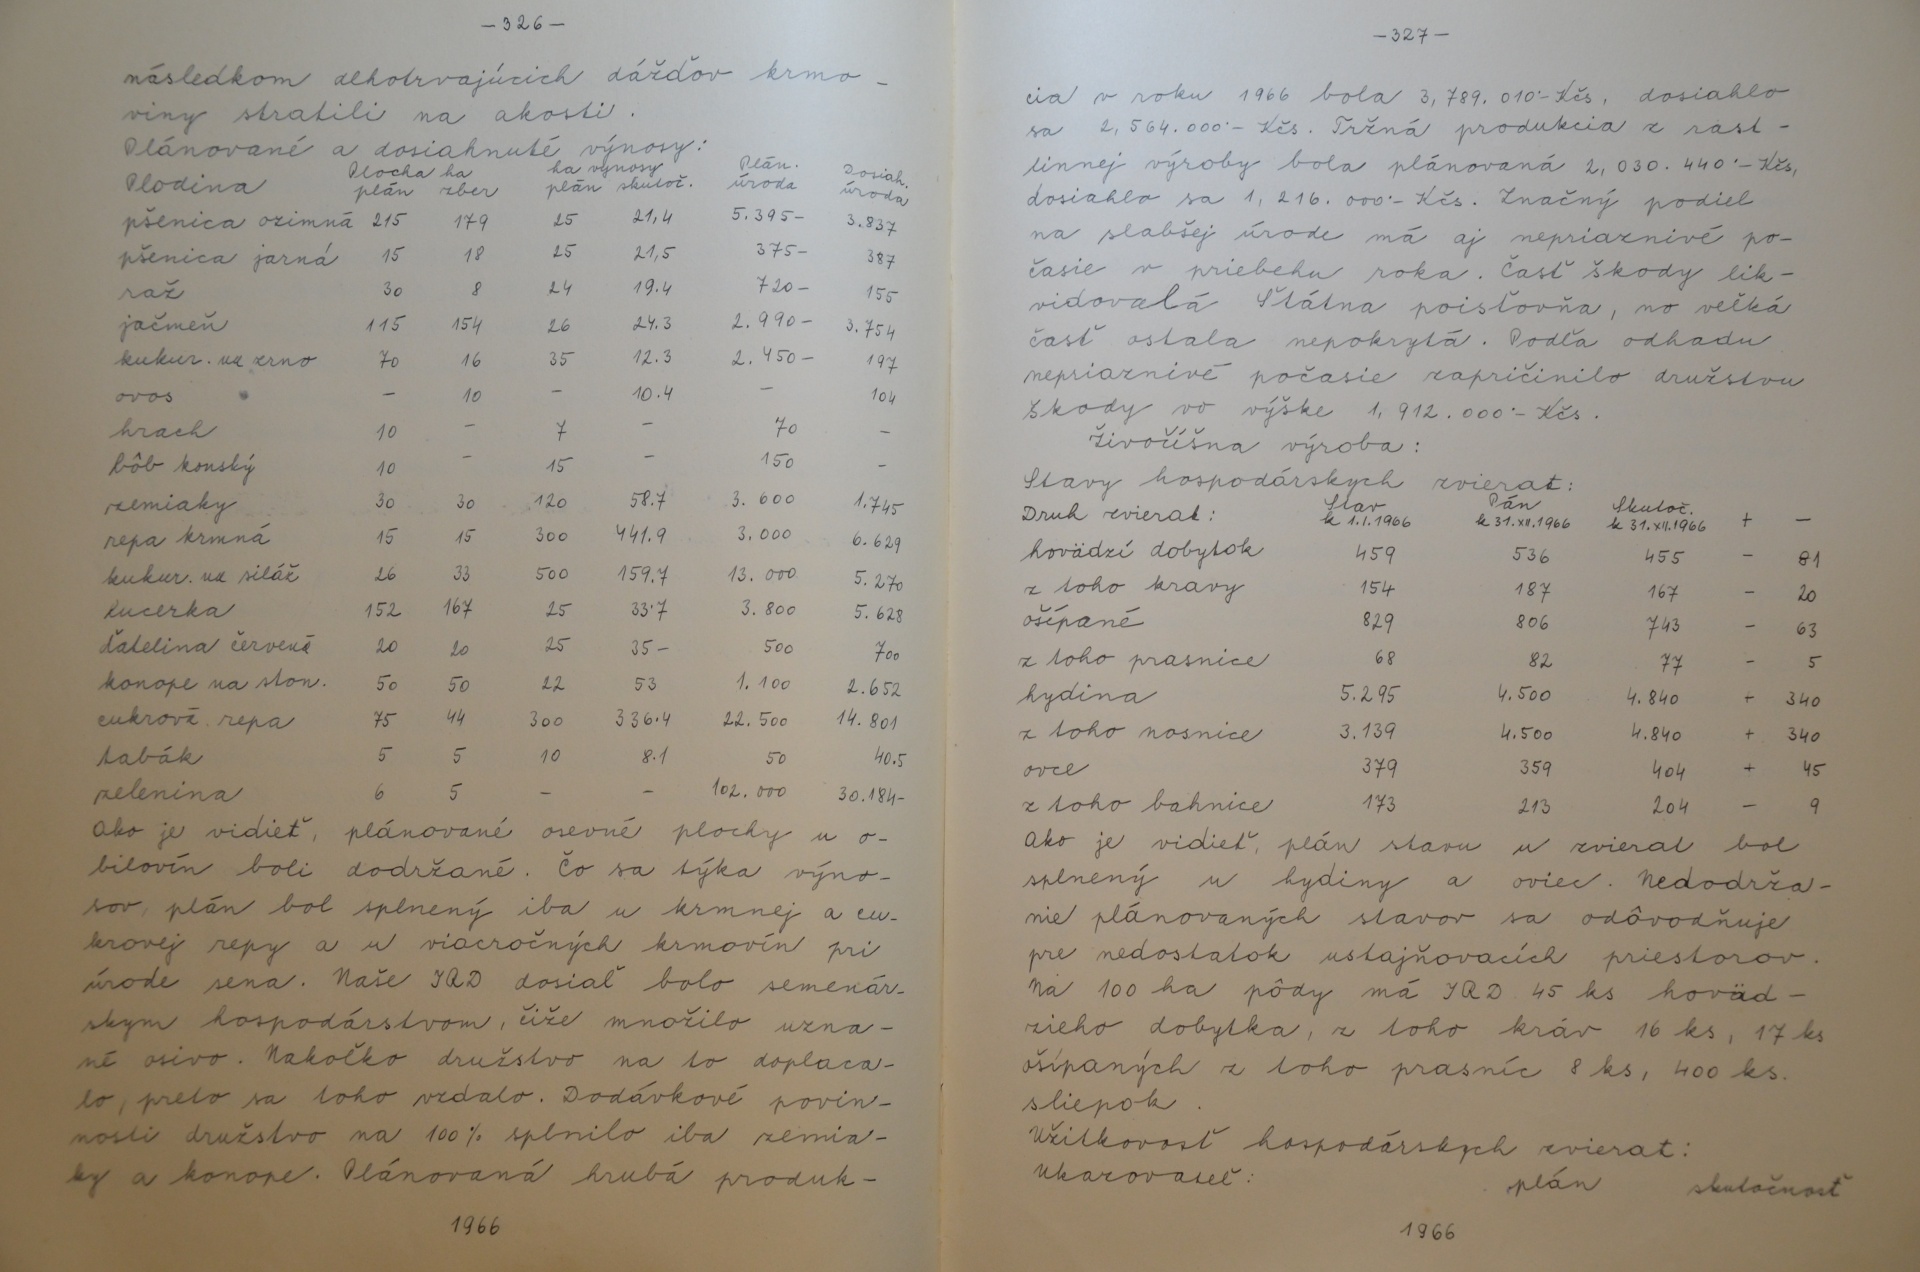 –326–
následkom dlhotrvajúcich dážďov krmo-
viny stratili na akosti.
Plánované a dosiahnuté výnosy:
Plodina Plocha ha plán zber ha výnosy plán skutoč. Plán. úroda Dosiah. úroda
pšenica ozimná 215 179 25 21,4 5.395- 3.837
pšenica jarná 15 18 25 21,5 375- 387
raž 30 8 24 19.4 720- 155
jačmeň 115 154 26 24.3 2.990- 3.754
kukur. na zrno 70 16 35 12.3 2.450- 197
ovos - 10 - 10.4 - 104
hrach 10 - 7 - 70 -
bôb konský 10 - 15 - 150 -
zemiaky 30 30 120 58.7 3.600 1.745
repa krmná 15 15 300 441.9 3.000 6.629
kukur. na siláž 26 33 500 159.7 13.000 5.270
lucerka 152 167 25 33.7 3.800 5.628
ďatelina červená 20 20 25 35- 500 700
konope na ston. 50 50 22 53 1.100 2.652
cukrová repa 75 44 300 336.4 22.500 14.801
tabák 5 5 10 8.1 50 40.5
zelenina 6 5 - - 102.000 30.184-
Ako je vidieť, plánované osevné plochy u o-
bilovín boli dodržané. Čo sa týka výno-
sov, plán bol splnený iba u krmnej a cu-
krovej repy a u viacročných krmovín pri
úrode sena. Naše JRD dosiaľ bolo semenár-
skym hospodárstvom, čiže množilo uzna-
né osivo. Nakoľko družstvo na to doplaca-
lo, preto sa toho vzdalo. Dodávkové povin-
nosti družstvo na 100% splnilo iba zemia-
ky a konope. Plánovaná hrubá produk-
1966
–327–
cia v roku 1966 bola 3,789.010·- Kčs, dosiahlo
sa 2,564.000·- Kčs. Tržná produkcia z rast-
linnej výroby bola plánovaná 2,030.440·- Kčs,
dosiahlo sa 1,216.000·- Kčs. Značný podiel
na slabšej úrode má aj nepriaznivé po-
časie v priebehu roka. Časť škody lik-
vidovala Štátna poisťovňa, no veľká
časť ostala nepokrytá. Podľa odhadu
nepriaznivé počasie zapričinilo družstvu
škody vo výške 1,912.000·- Kčs.
Živočíšna výroba:
Stavy hospodárskych zvierat:
Druh zvierat: Stav k 1.I.1966 Pán k 31.XII.1966 Skutoč. k 31.XII.1966 + -
hovädzí dobytok 459 536 455 - 81
z toho kravy 154 187 167 - 20
ošípané 829 806 743 - 63
z toho prasnice 68 82 77 - 5
hydina 5.295 4.500 4.840 + 340
z toho nosnice 3.139 4.500 4.840 + 340
ovce 379 359 404 + 45
z toho bahnice 173 213 204 - 9
Ako je vidieť, plán stavu u zvierat bol
splnený u hydiny a oviec. Nedodrža-
nie plánovaných stavov sa odôvodňuje
pre nedostatok ustajňovacích priestorov.
Na 100 ha pôdy má JRD 45 ks hoväd-
zieho dobytka, z toho kráv 16 ks, 17 ks
ošípaných z toho prasníc 8 ks, 400 ks.
sliepok.
Užitkovosť hospodárskych zvierat:
Ukazovateľ: plán skutočnosť
1966